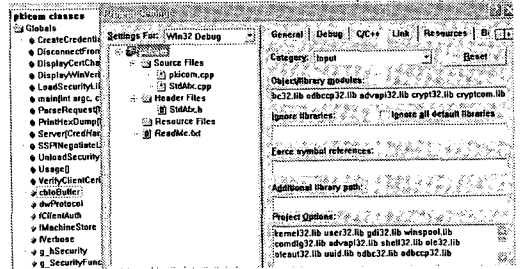 pkicom classes
Globals
CreateCredentia
DisconnectFrom
DisplayCertCha
DisplayWinVeri
LoadSecurityLi
main(int argc, c
ParseRequest(
PrintHexDump(
Server(CredHan
SSPINegotiateL
UnloadSecurity
Usage()
VerifyClientCert
cbIoBuffer
dwProtocol
fClientAuth
fMachineStore
fVerbose
g_hSecurity
g_SecurityFunc
Project Settings
Settings For: Win32 Debug
Source Files
pkicom.cpp
StdAfx.cpp
Header Files
StdAfx.h
Resource Files
ReadMe.txt
General Debug C/C++ Link Resources
Category: Input
Reset
Object/library modules:
bc32.lib odbccp32.lib advapi32.lib crypt32.lib cryptcom.lib
Ignore libraries:
Ignore all default libraries
Force symbol references:
Additional library path:
Project Options:
kernel32.lib user32.lib gdi32.lib winspool.lib
comdlg32.lib advapi32.lib shell32.lib ole32.lib
oleaut32.lib uuid.lib odbc32.lib odbccp32.lib